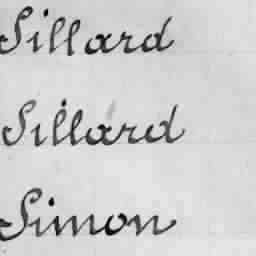 Sillard
Sillard
Simon